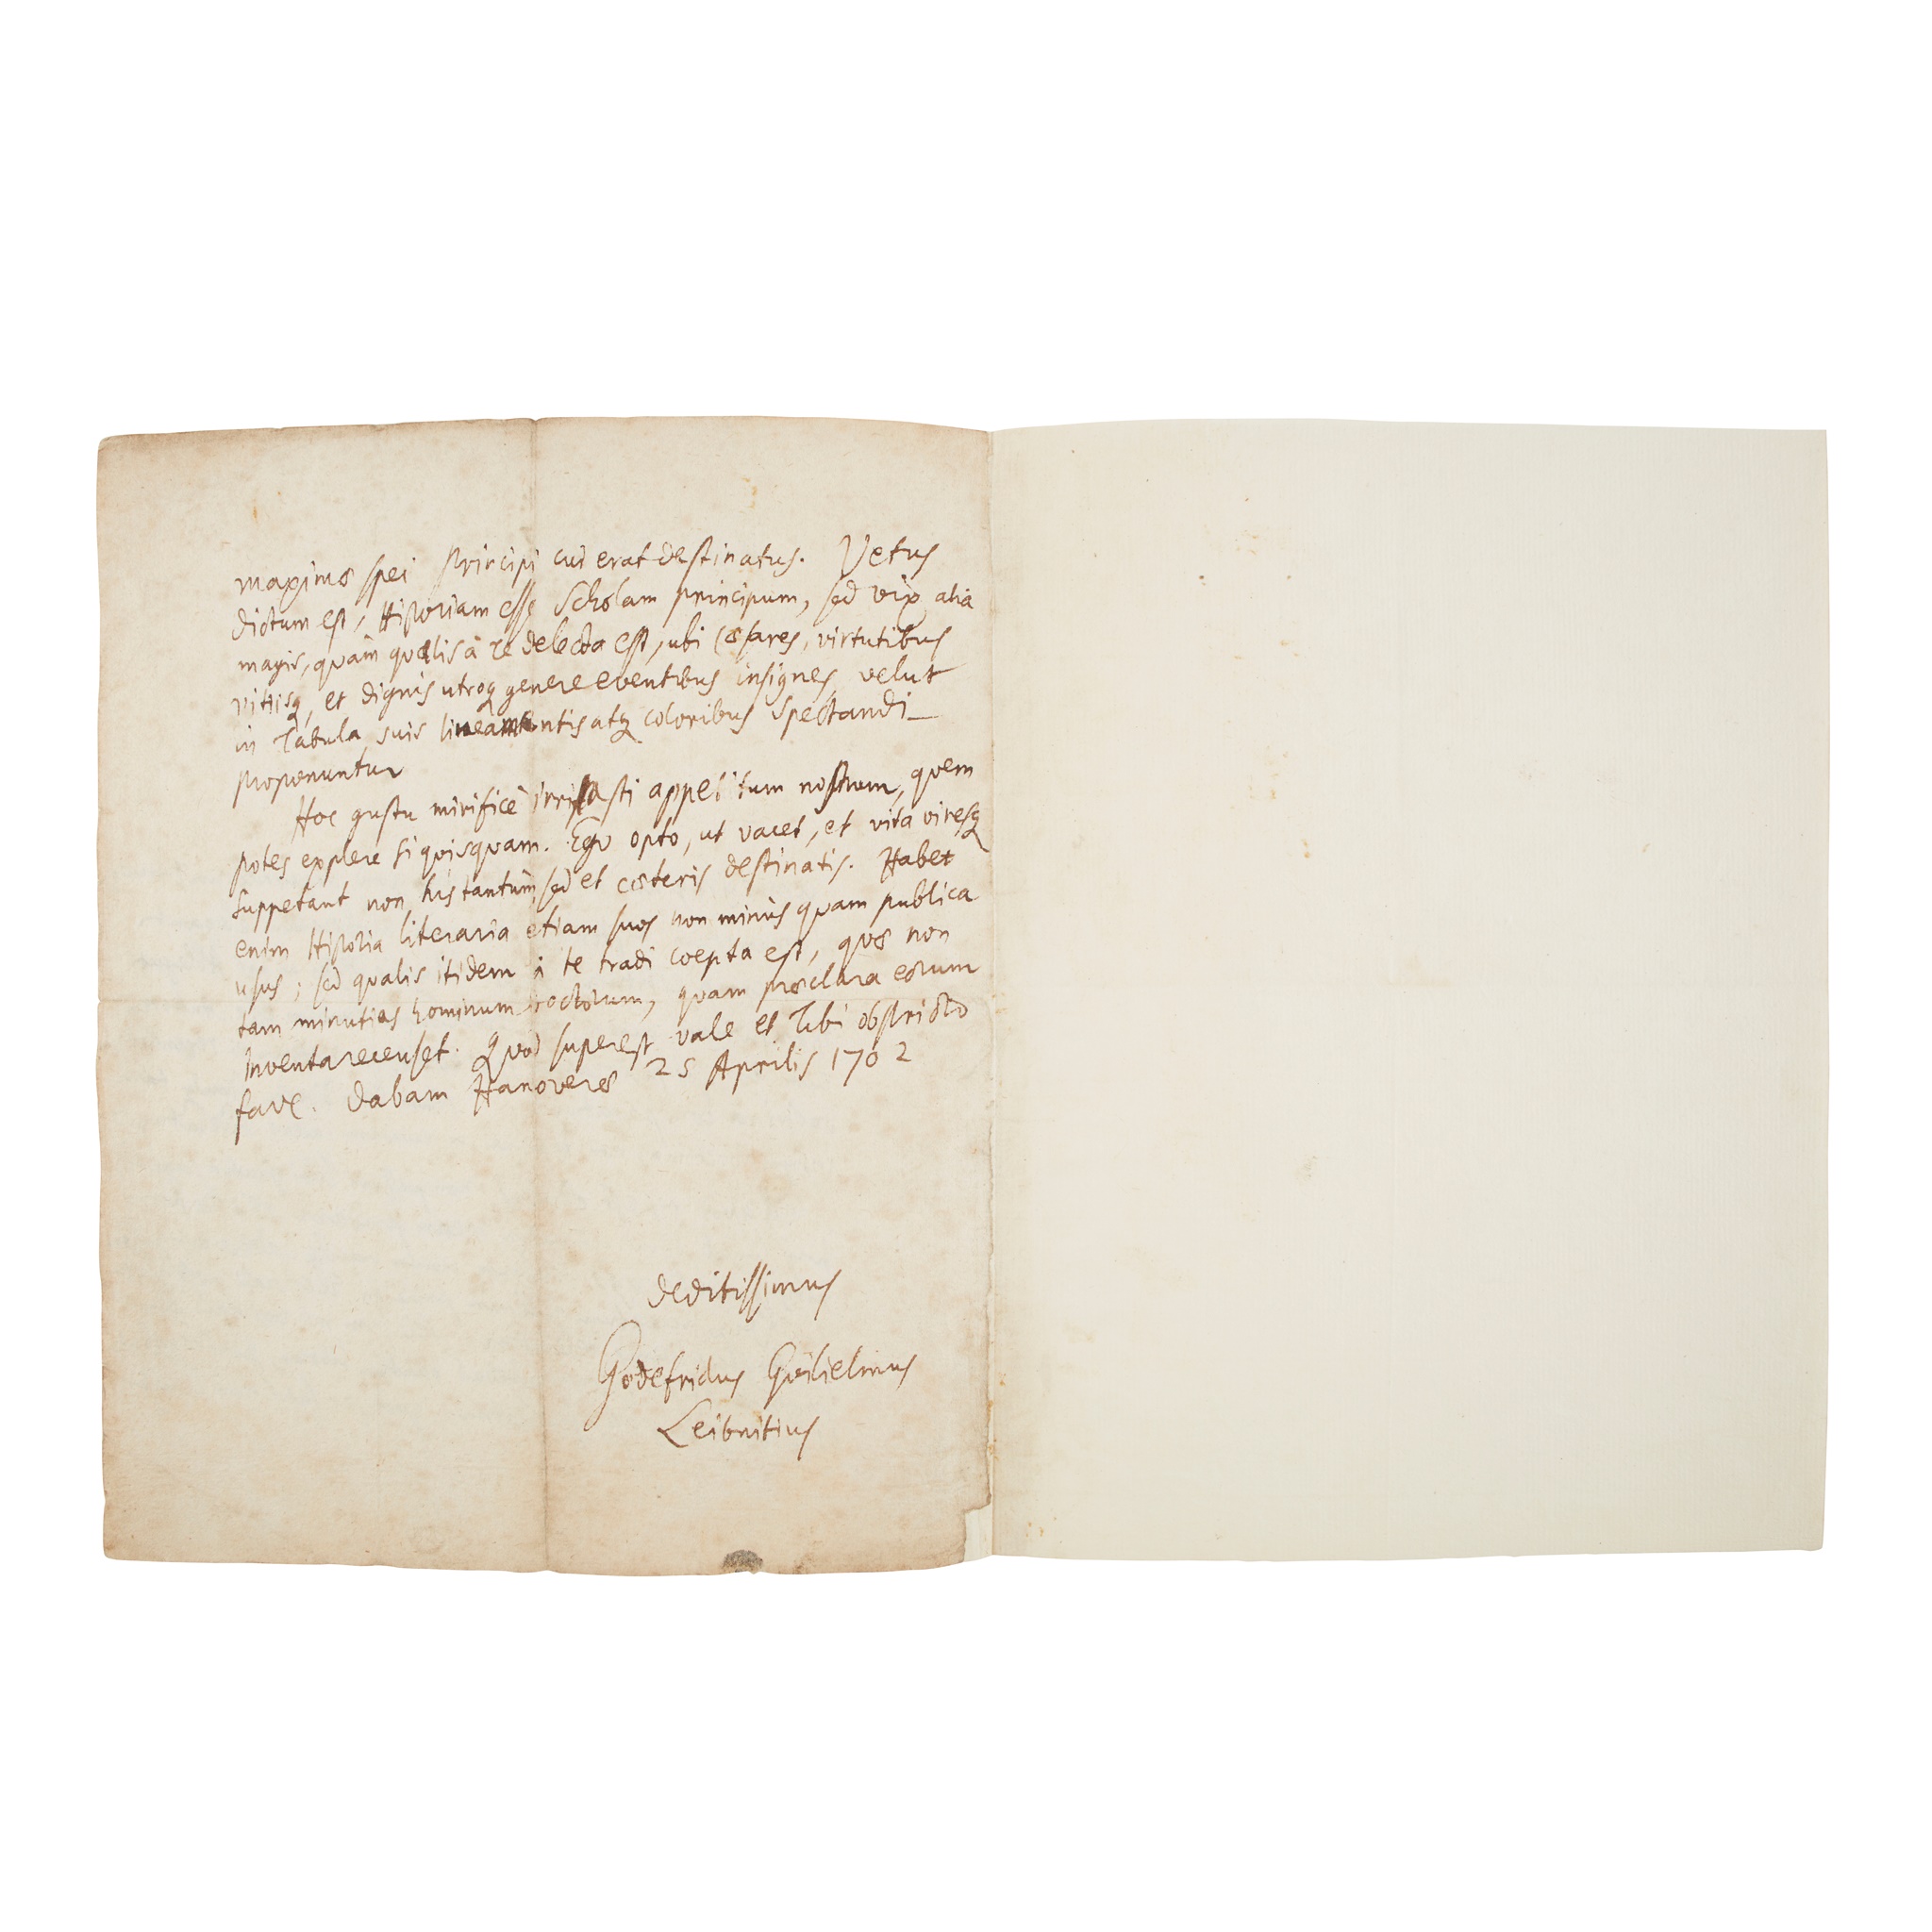 maximæ spei principi cui erat destinatus. Vetus
dictum est, Historiam esse Scholam principum, sed vix alia
magis, quàm qualis à te delecta est, ubi Cæsares, virtutibus
vitiisq, et dignis utroq genere eventibus insignes, velut
in Tabula suis lineamentis atq coloribus spectandi
proponuntur
Hoc gustu mirificè irritasti appetitum nostrum, quem
potes explere si quisquam. Ego opto, ut vacet, et vita viresq
suppetant non his tantùm, sed et cæteris destinatis. Habet
enim Historia literaria etiam suos non minùs quam publica
usus; sed qualis itidem à te tradi coepta est, quæ non
tam minutias hominum doctorum, quam præclara eorum
inventa recenset. Quod superest vale et Tibi obstricto
fave. Dabam Hanoveræ 25 Aprilis 1702
deditissimus
Godefridus Guilielmus
Leibnitius